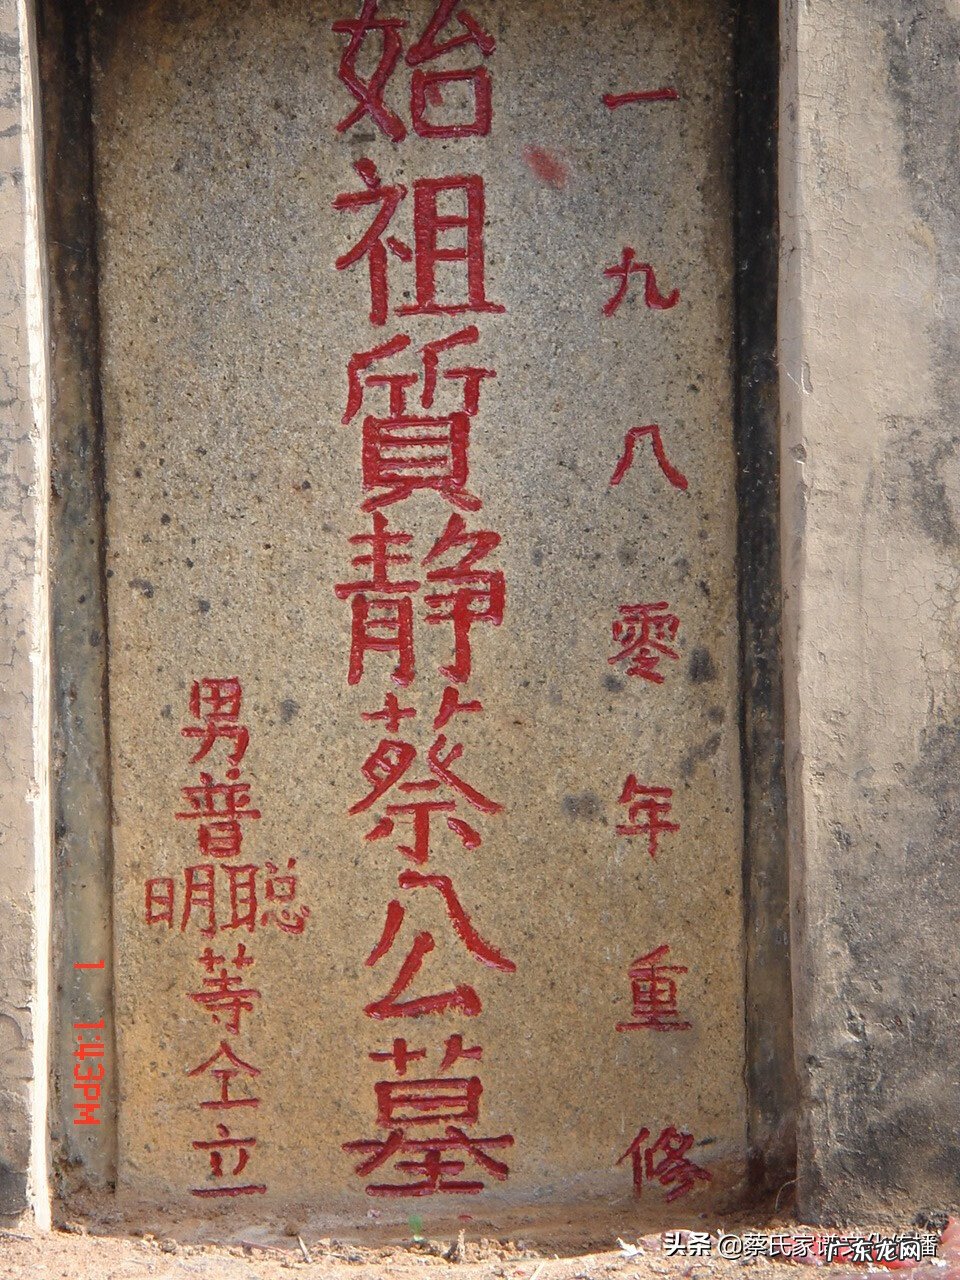 一九八零年重修
始祖質静蔡公墓
男普明聪等仝立
1 1:43PM
头条 @蔡氏家谱
广东龙网